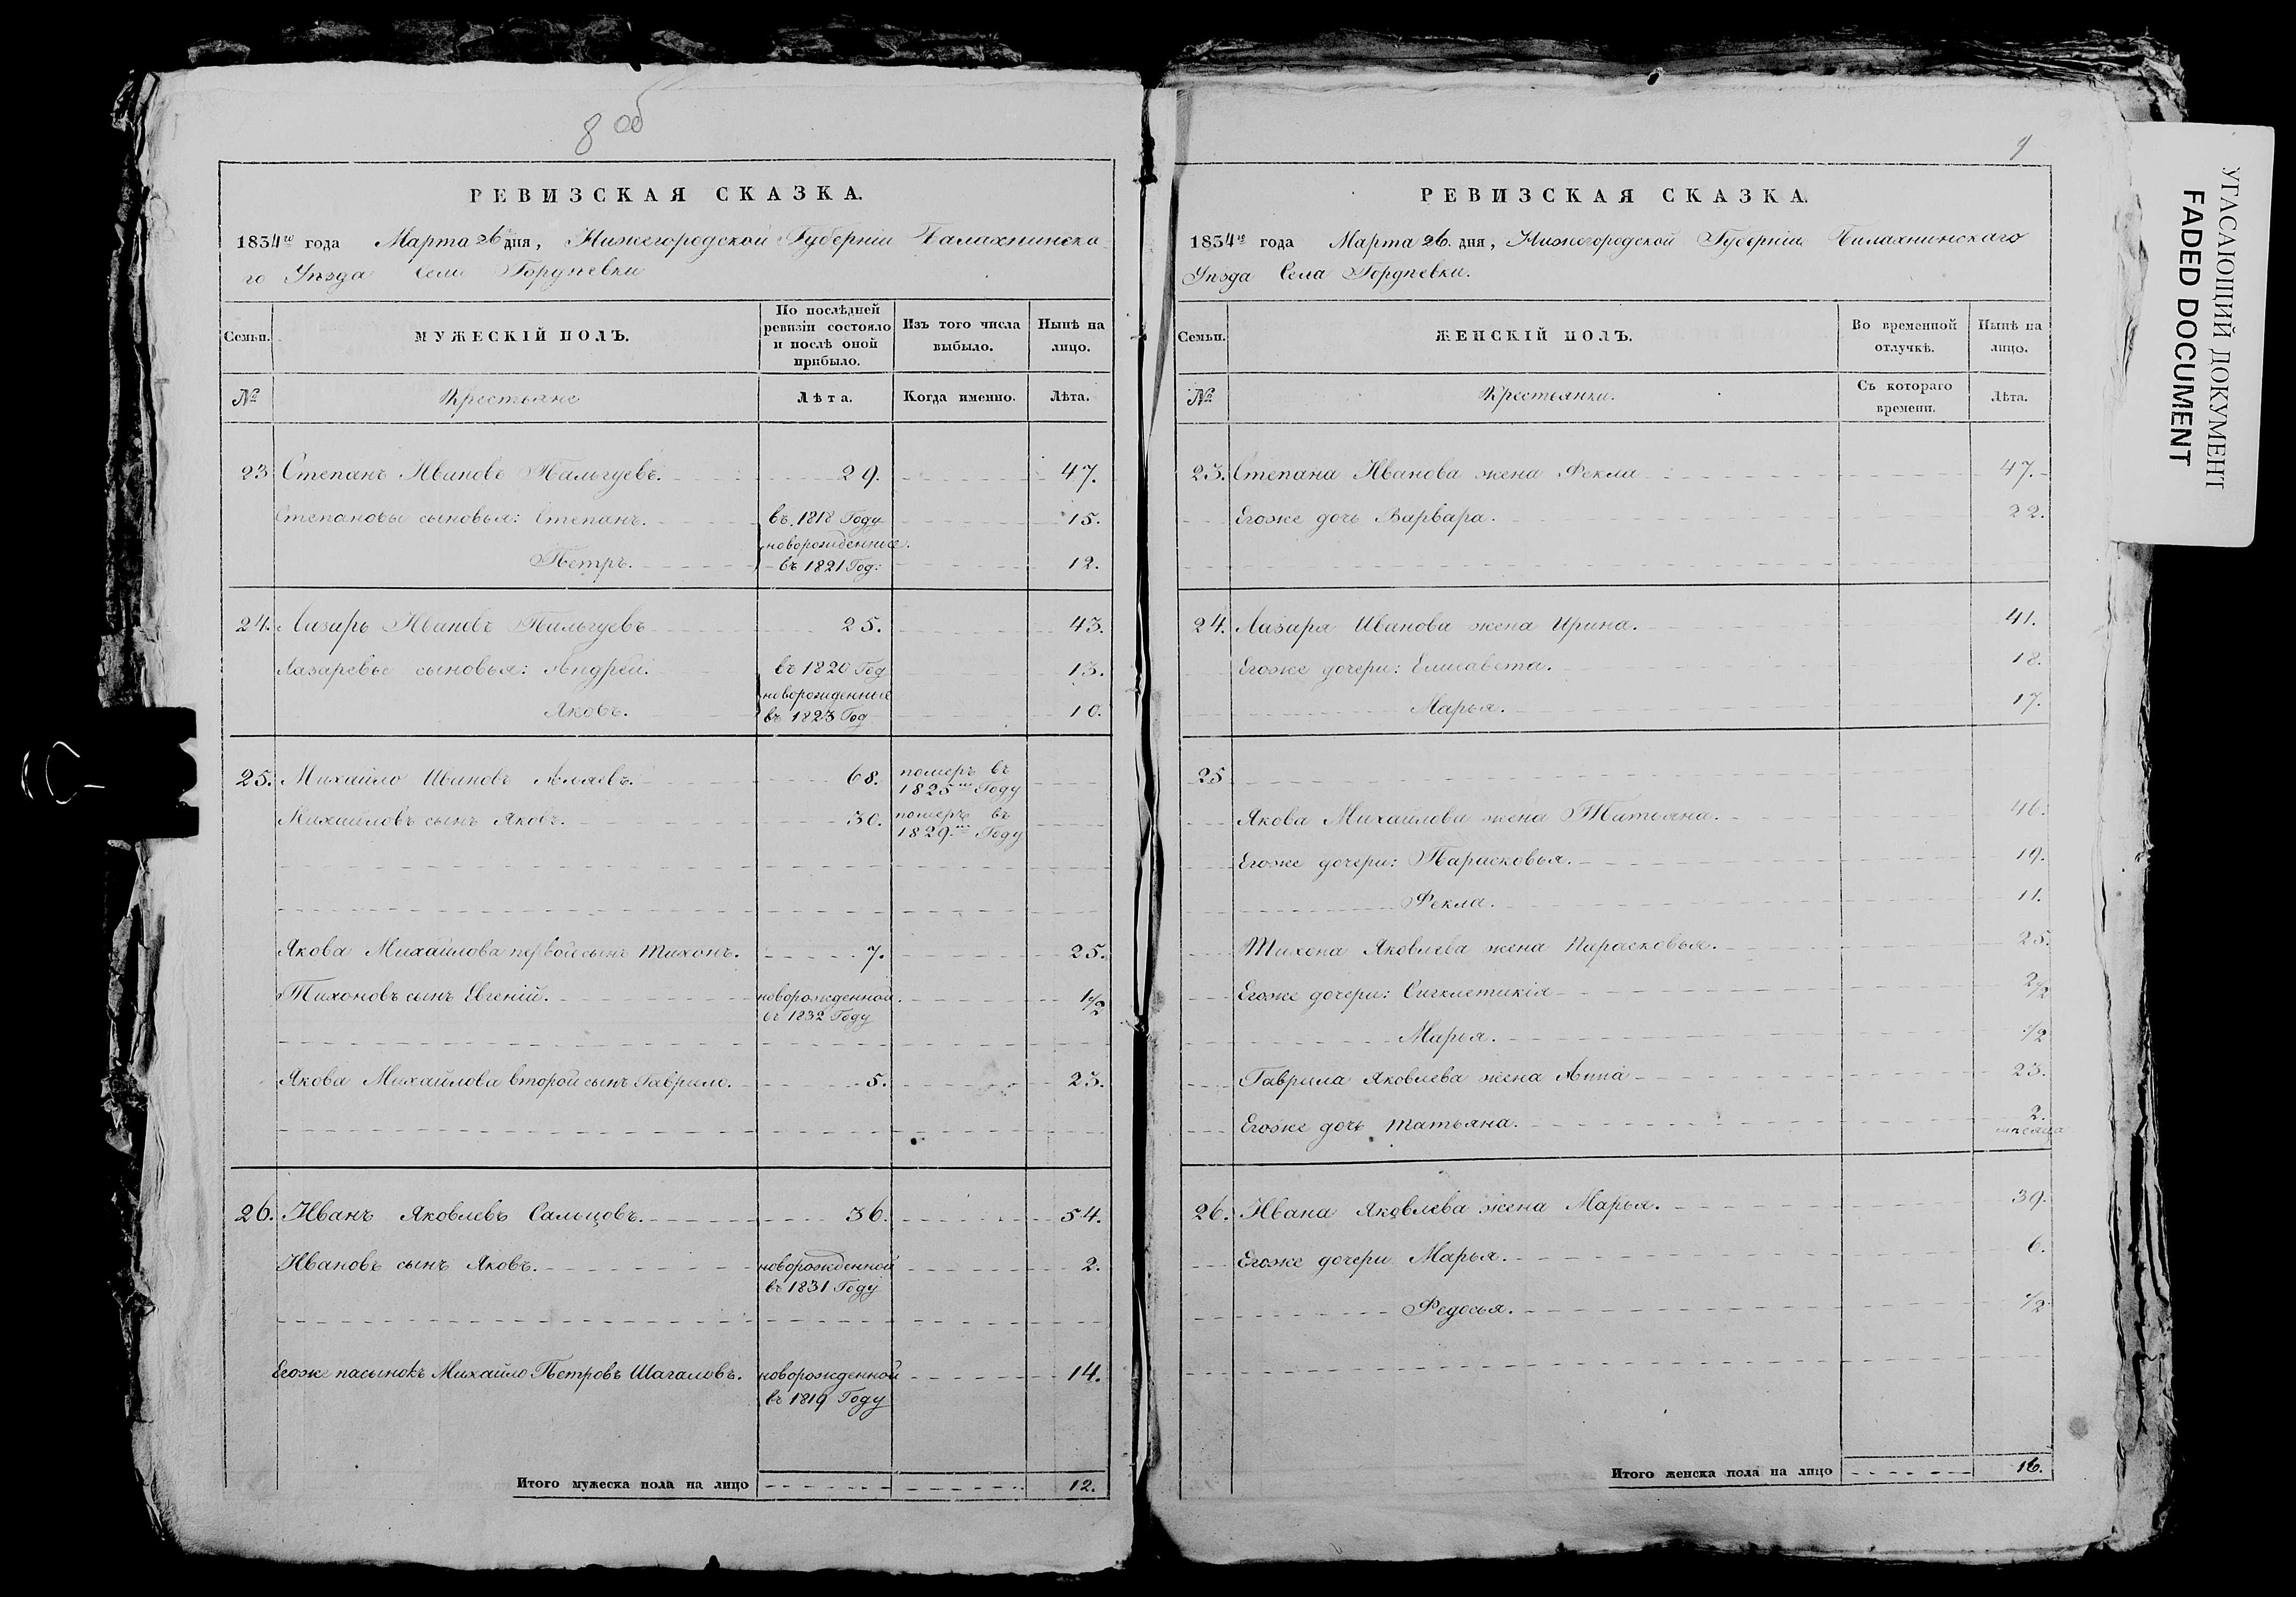 8 об
РЕВИЗСКАЯ СКАЗКА.
1834го года Марта 26 дня, Нижегородской Губерніи Балахнинска
го Уѣзда Села Гордѣевки
Семьи.
МУЖЕСКІЙ ПОЛЪ.
По послѣдней ревизіи состояло и послѣ оной прибыло.
Изъ того числа выбыло.
Нынѣ на лицо.
№ Крестьяне Лѣта. Когда именно. Лѣта.
23 Степанъ Ивановъ Пальгуевъ. 29. 47.
Степановы сыновья: Степанъ. въ 1818 Году 15.
новорожденные.
Петръ. въ 1821 Год: 12.
24. Лазарь Ивановъ Пальгуевъ 25. 43.
Лазаревы сыновья: Андрей. въ 1820 Год 13.
новорожденные
Яковъ. въ 1823 Год 10.
25. Михайло Ивановъ 68. померъ въ 1825м Году
Михайловъ сынъ Яковъ. 30. померъ въ 1829м Году
Якова Михайлова первой сынъ Тихонъ. 7. 25.
Тихоновъ сынъ Евгеній. новорожденной. 1 1/2
въ 1832 Году
Якова Михайлова второй сынъ Гаврило. 5. 23.
26. Иванъ Яковлевъ Сальцовъ. 36. 54.
Ивановъ сынъ Яковъ. новорожденной 2.
въ 1831 Году
Егоже пасынокъ Михайло Петровъ Шагаловъ. новорожденной 14.
въ 1819 Году
Итого мужеска пола на лицо 12.
9
РЕВИЗСКАЯ СКАЗКА.
1834го года Марта 26. дня, Нижегородской Губерніи Балахнинскаго
Уѣзда Села Гордѣевки.
Семьи.
ЖЕНСКІЙ ПОЛЪ.
Во временной отлучкѣ.
Нынѣ на лицо.
№ Крестьянки. Съ котораго времени. Лѣта.
23. Степана Иванова жена Фекла 47.
Егоже дочь Варвара. 22.
24. Лазаря Иванова жена Ирина. 41.
Егоже дочери: Елисавета. 18.
Марья. 17.
25
Якова Михайлова жена Татьяна. 46.
Егоже дочери: Парасковья. 19.
Фекла. 11.
Тихона Яковлева жена Парасковья. 25.
Егоже дочери: Сигклетикія 2 1/2
Марья. 1/2
Гаврила Яковлева жена Анна 23.
Егоже дочь Татьяна. 2. мѣсяца
26. Ивана Яковлева жена Марья. 39.
Егоже дочери Марья. 6.
Федосья. 1/2
Итого женска пола на лицо 16.
УГАСАЮЩИЙ ДОКУМЕНТ
FADED DOCUMENT